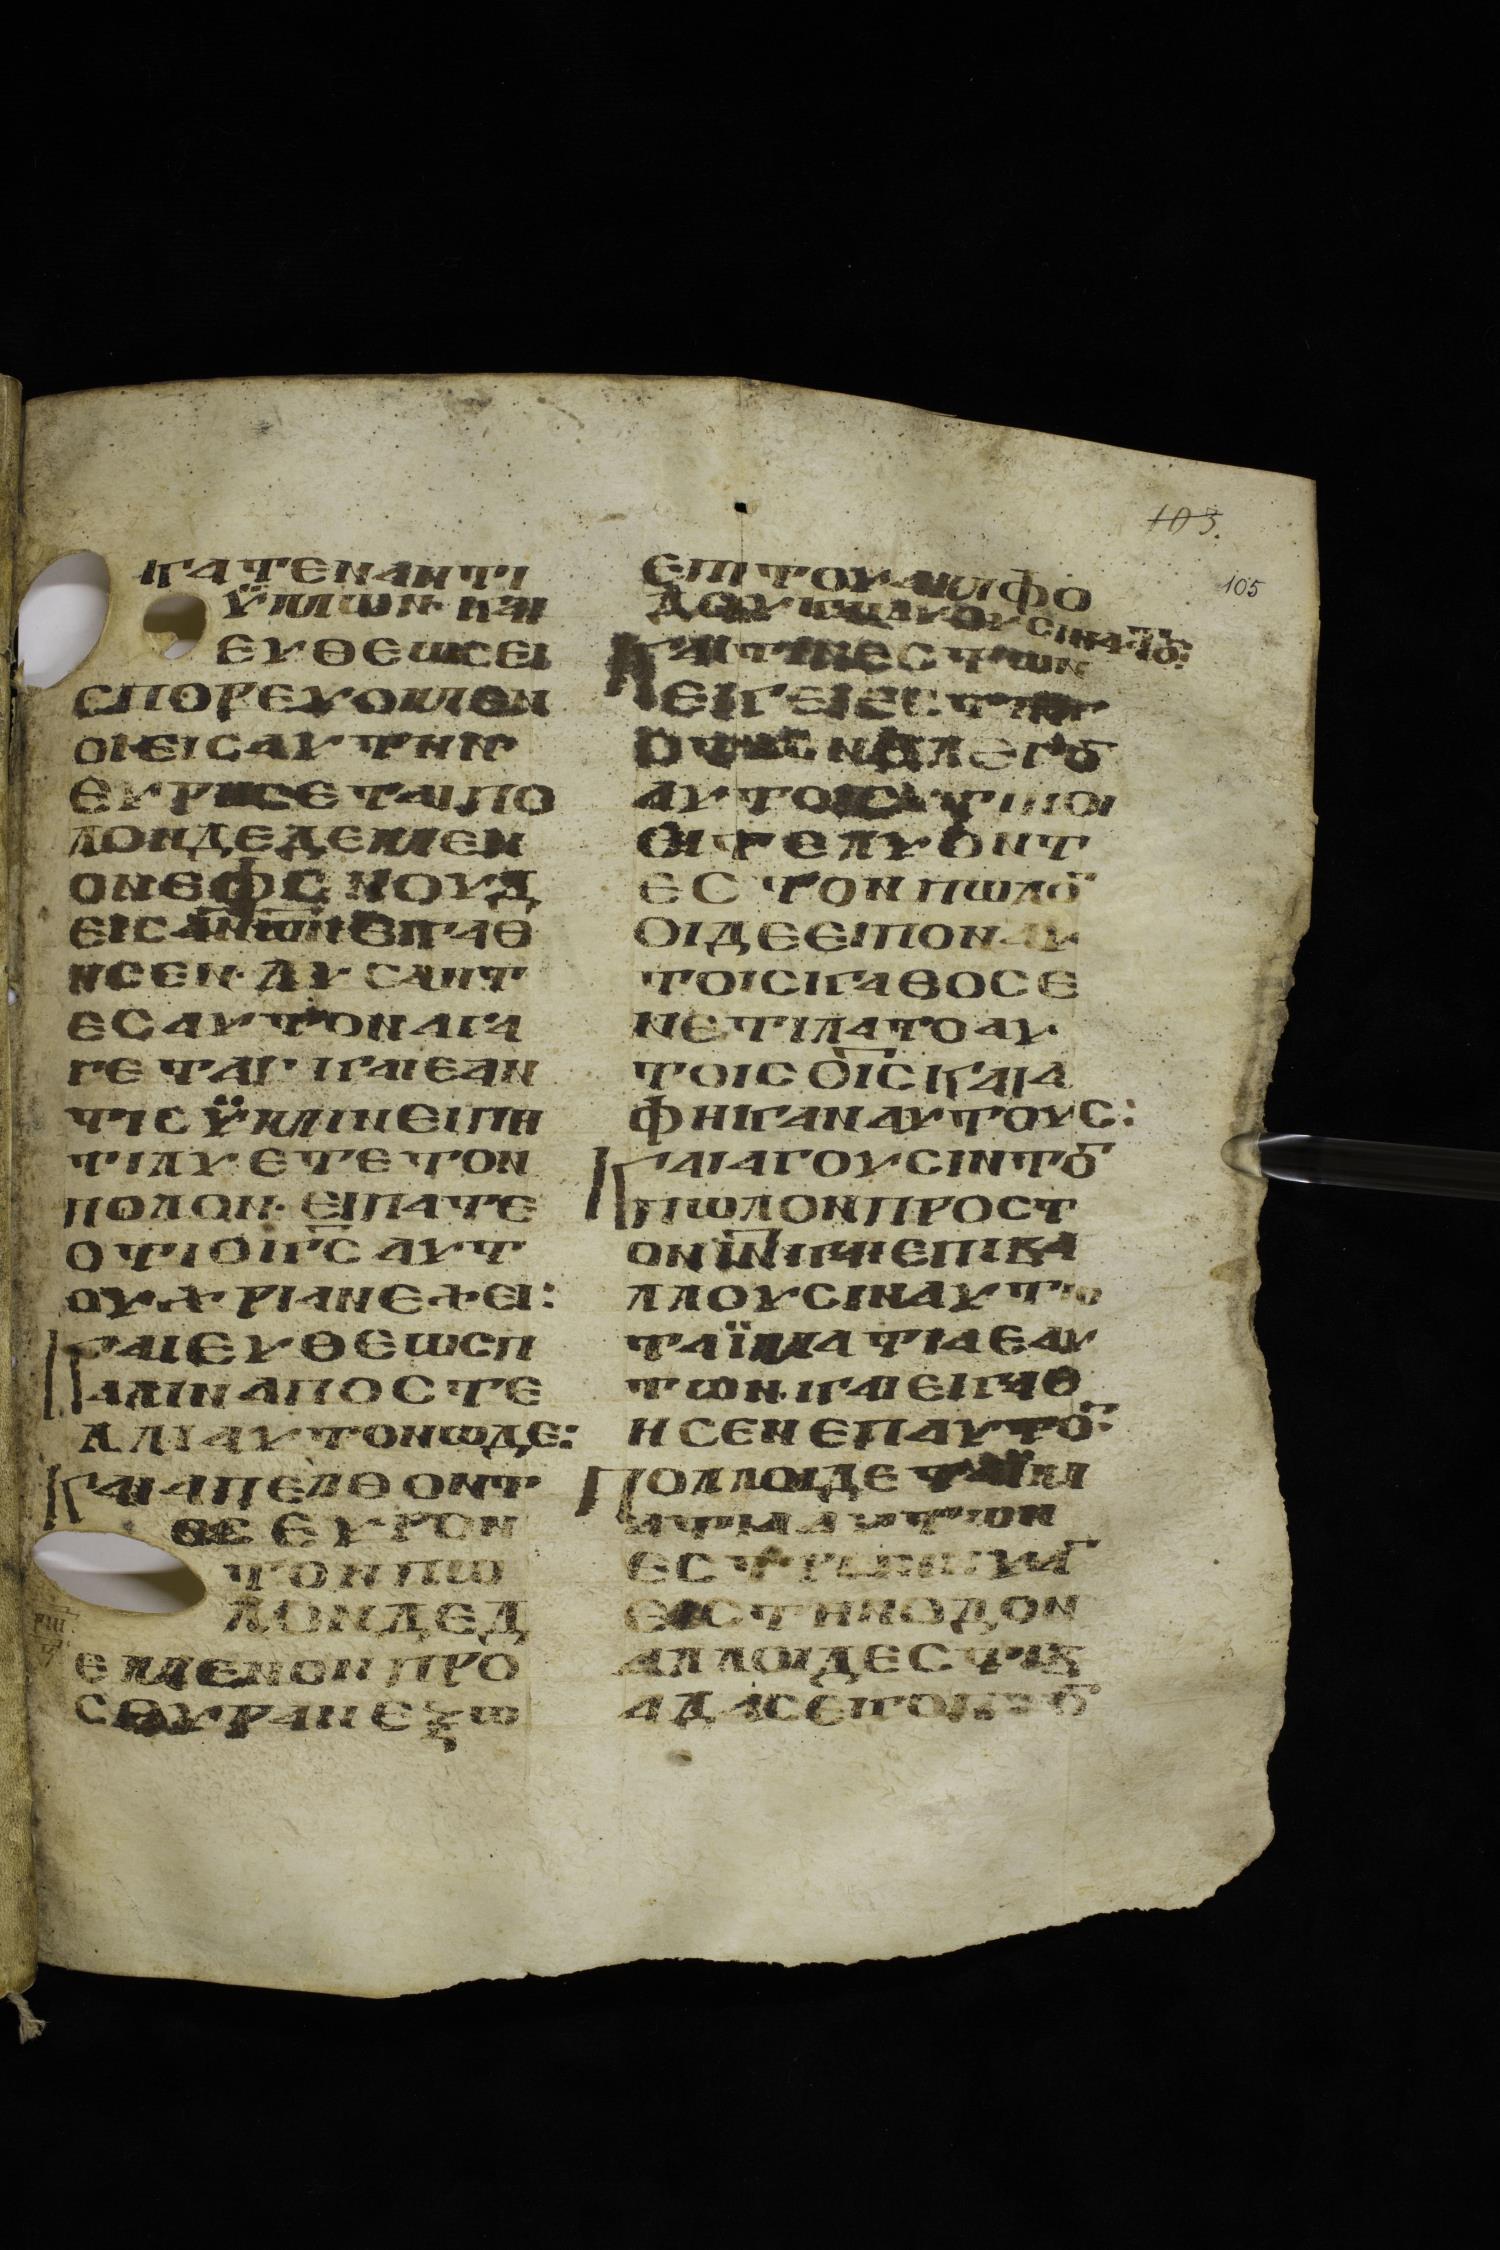 103.
105
ΚΑΤΕΝΑΝΤΙ
ΫΜΩΝ· ΚΑΙ
ΕΥΘΕΩΣΕΙ
ΣΠΟΡΕΥΟΜΕΝ
ΟΙΕΙΣΑΥΤΗΝ
ΕΥΡΗΣΕΤΑΙΠΟ
ΛΟΝΔΕΔΕΜΕΝ
ΟΝΕΦΟΝΟΥΔ
ΕΙΣΑΝΩΝΕΚΑΘ
ΗΣΕΝ· ΛΥΣΑΝΤ
ΕΣΑΥΤΟΝΑΓΑ
ΓΕΤΑΙ· ΚΑΙΕΑΝ
ΤΙΣΫΜΙΝΕΙΠΗ
ΤΙΛΥΕΤΕΤΟΝ
ΠΟΛΟΝ· ΕΙΠΑΤΕ
ΟΤΙΟΚ̅Σ̅ΑΥΤ
ΟΥΧΡΙΑΝΕΧΕΙ:
ΚΑΙΕΥΘΕΩΣΠ
ΑΛΙΝΑΠΟΣΤΕ
ΛΛΙΑΥΤΟΝΩΔΕ:
ΚΑΙΑΠΕΛΘΟΝΤ
ΕΣΕΥΡΟΝ
ΤΟΝΠΩ
ΛΟΝΔΕΔ
ΕΜΕΝΟΝΠΡΟ
ΣΘΥΡΑΝΕΞΩ
ΕΠΙΤΟΥΑΜΦΟ
ΔΟΥΚΑΙΛΥΟΥΣΙΝΑΥΤΟ̅:
ΚΑΙΤΙΝΕΣΤΩΝ
ΕΚΕΙΕΣΤΗΚ
ΟΤΩΝΕΛΕΓΟ̅
ΑΥΤΟΙΣΤΙΠΟΙ
ΕΙΤΕΛΥΟΝΤ
ΕΣΤΟΝΠΩΛΟ̅
ΟΙΔΕΕΙΠΟΝΑΥ
ΤΟΙΣΚΑΘΟΣΕ
ΝΕΤΙΛΑΤΟΑΥ
ΤΟΙΣΟΙ̅Σ̅ΚΑΙΑ
ΦΗΚΑΝΑΥΤΟΥΣ:
ΚΑΙΑΓΟΥΣΙΝΤΟ̅
ΠΩΛΟΝΠΡΟΣΤ
ΟΝΙ̅Ν̅ΚΑΙΕΠΙΒΑ
ΛΛΟΥΣΙΝΑΥΤΩ
ΤΑΪΜΑΤΙΑΕΑΥ
ΤΩΝ· ΚΑΙΕΚΑΘ
ΗΣΕΝΕΠΑΥΤΟ̅:
ΠΟΛΛΟΙΔΕΤΑΪΜ
ΑΤΙΑΑΥΤΩΝ
ΕΣΤΡΩΝΝΥΟ̅
ΕΙΣΤΗΝΟΔΟΝ
ΑΛΛΟΙΔΕΣΤΙΒ
ΑΔΑΣΕΚΟΠΤΟ̅